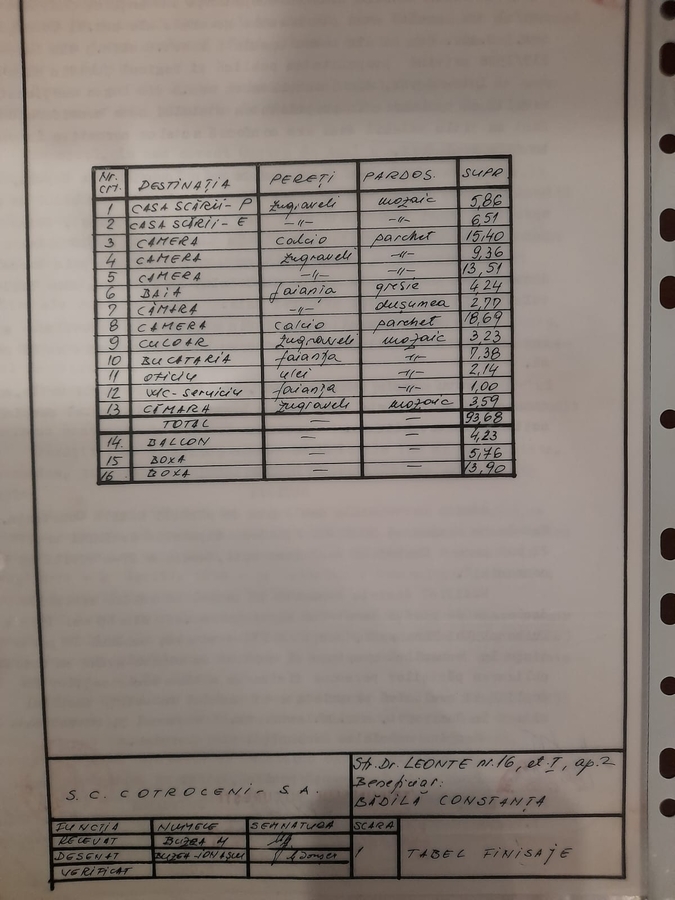 Nr. crt. DESTINAȚIA PEREȚI PARDOS. SUPR.
1 CASA SCĂRII - P zugraveli mozaic 5,86
2 CASA SCĂRII - E -"- -"- 6,51
3 CAMERA calcio parchet 15,40
4 CAMERA zugraveli -"- 9,36
5 CAMERA -"- -"- 13,51
6 BAIA faianța gresie 4,24
7 CĂMARA -"- dușumea 2,77
8 CAMERA calcio parchet 18,69
9 CULOAR zugraveli mozaic 3,23
10 BUCATARIA faianța -"- 7,38
11 oficiu ulei -"- 2,14
12 WC-serviciu faianța -"- 1,00
13 CĂMARA zugraveli mozaic 3,59
TOTAL — — 93,68
14. BALCON — — 4,23
15 BOXA — — 5,76
16 BOXA — — 13,90
S.C. COTROCENI - S.A.
Str. Dr. LEONTE nr. 16, et. I, ap. 2
Beneficiar:
BĂDILĂ CONSTANȚA
FUNCȚIA NUMELE SEMNATURA SCARA
RELEVAT BUZEA M
DESENAT BUZEA IONAȘCU 1
VERIFICAT
TABEL FINISAJE